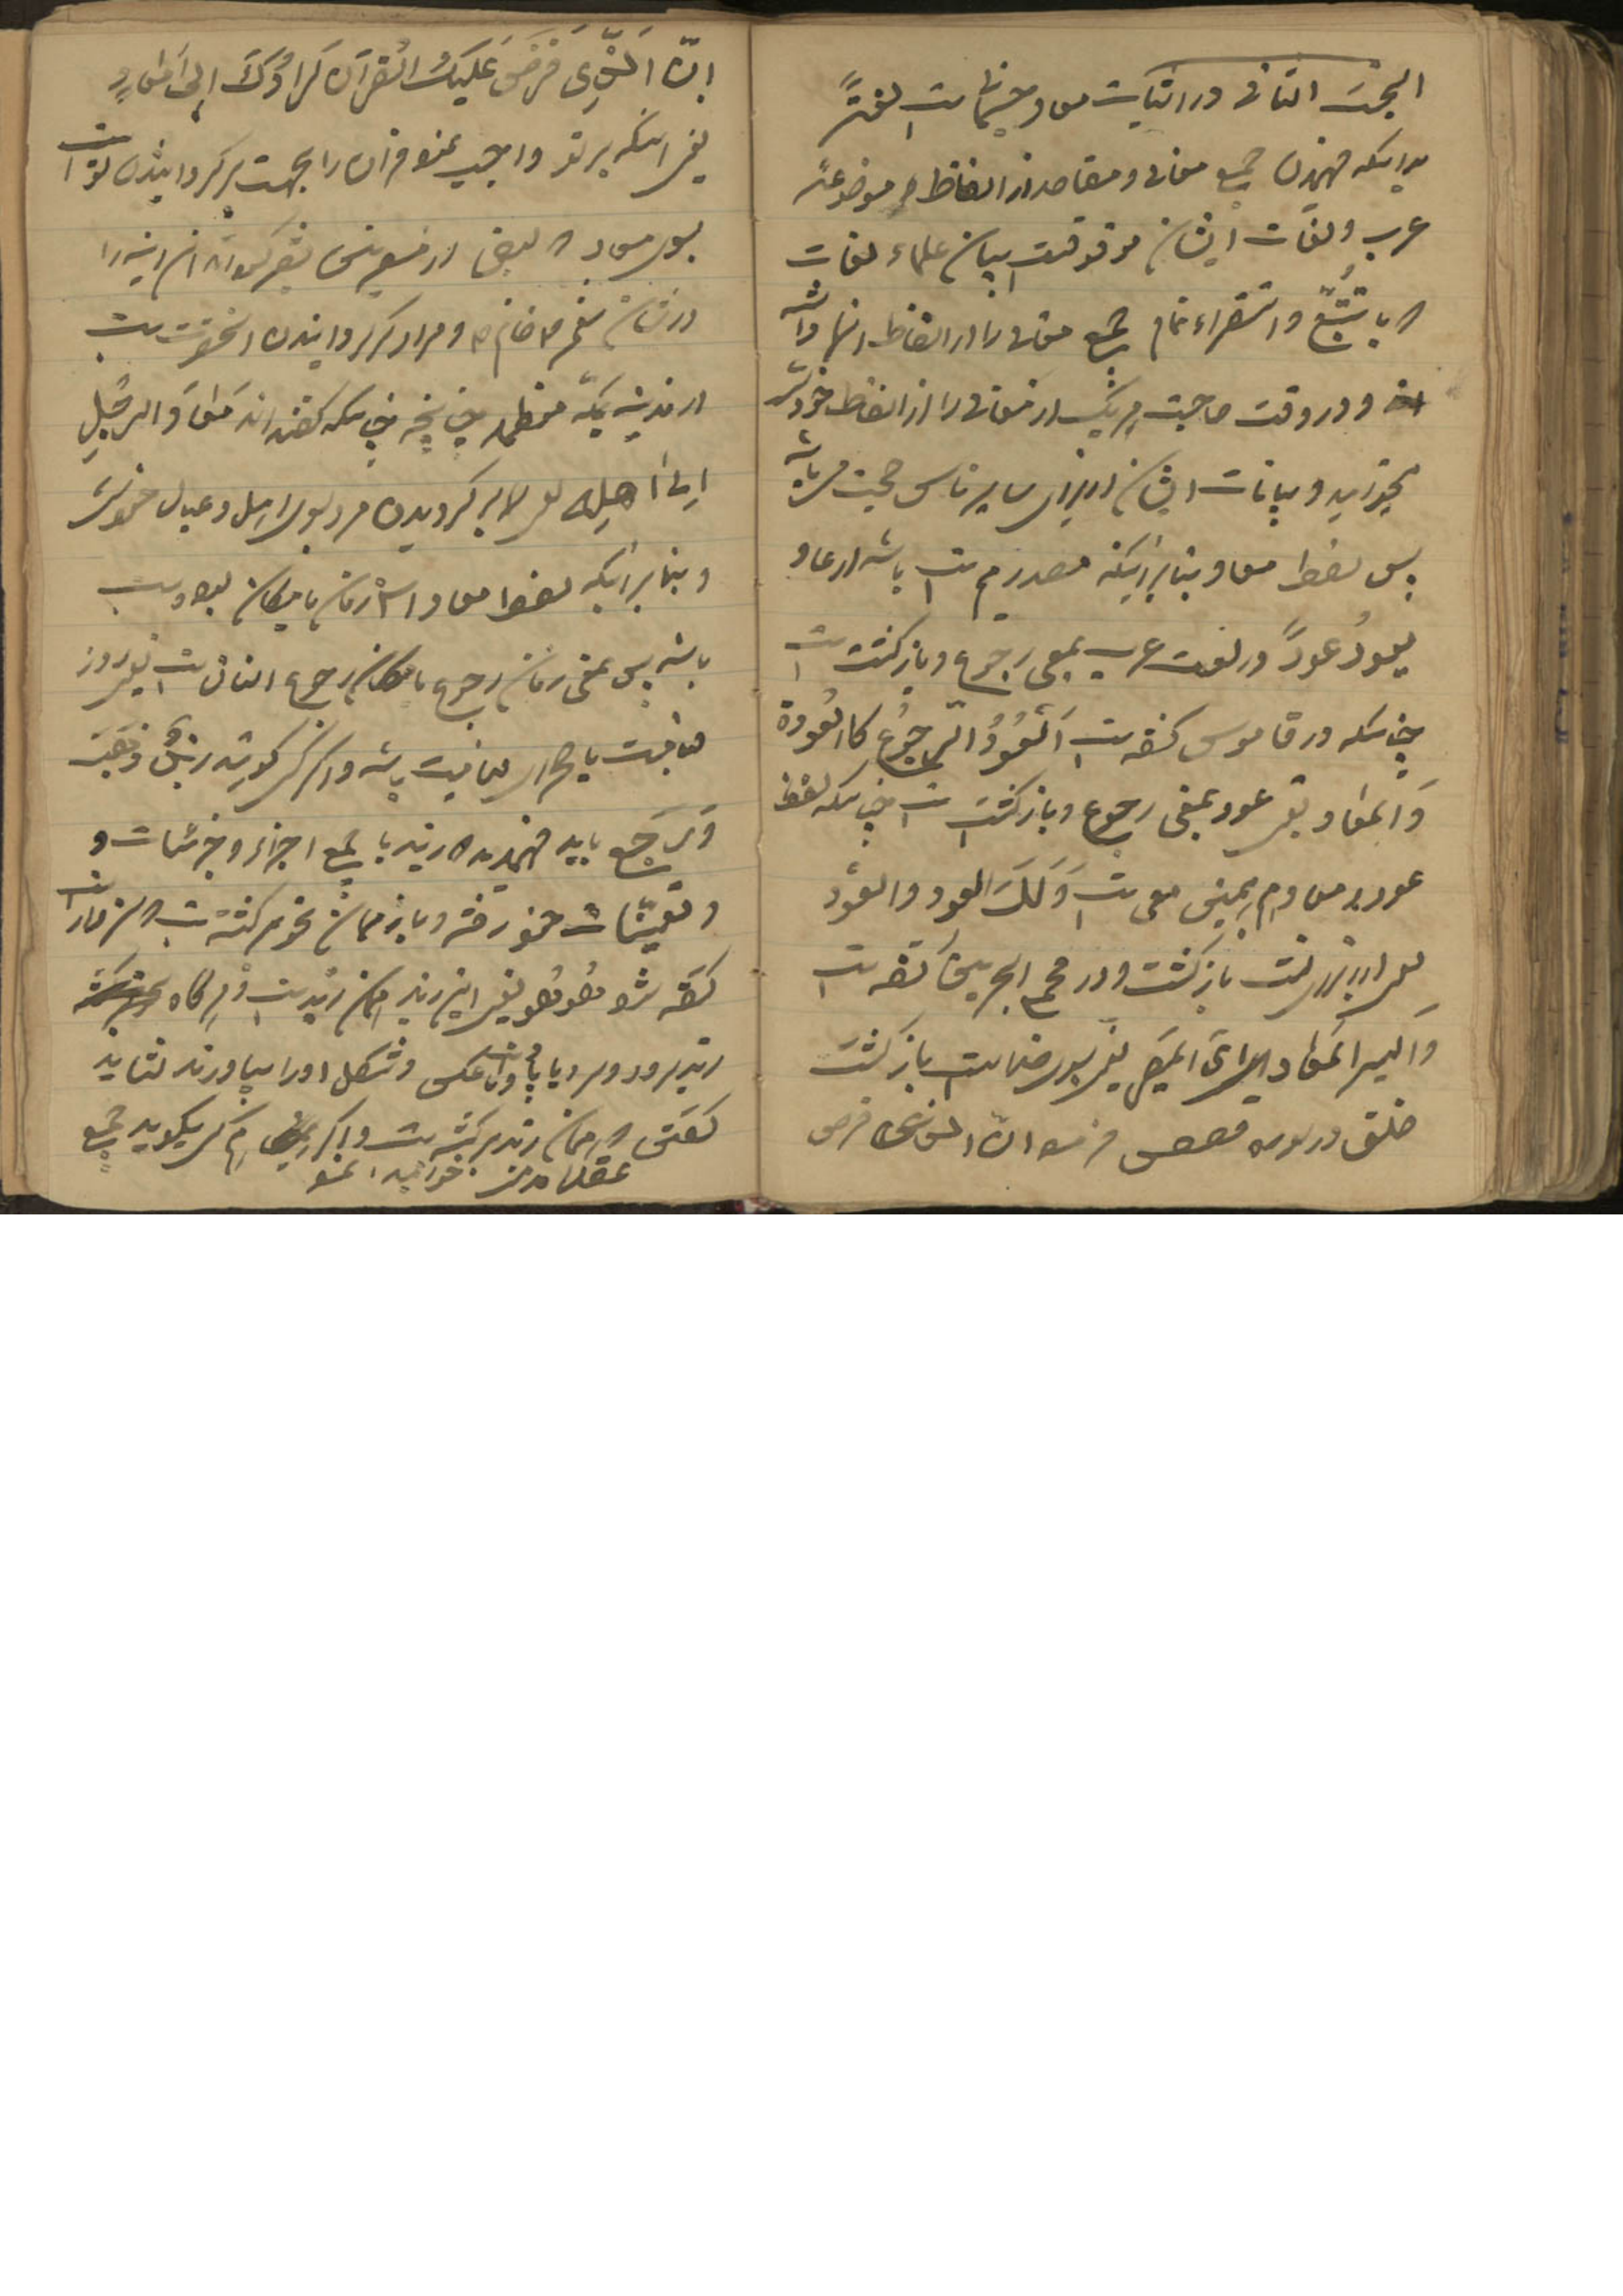 البحث الثانی در اثبات معاد جسمانیست لغةً
بدانکه فهمیدن جمیع معانی و مقاصد از الفاظ موضوعه
عرب و لغات ایشان موقوفست ببیان علماء لغات
که با تتبّع و استقراء تمام جمیع معانی را از الفاظ انها
و در وقت حاجت هر یک از معانی را از الفاظ خودش
و بیانات ایشان از برای سایر ناس حجت میباشد
پس لفظ معاد بنابر اینکه مصدر میم است باشد از عاد
یعودُ عوداً در لغت عرب بمعنی رجوع و بازکشت است
چنانکه در قاموس کفته است اَلعَودُ الرّجوُع کالعَودة
وَ المعاد یعنی عود بمعنی رجوع و بازکشتست چنانکه لفظ
عودة و معاد هم بهمین معنی است وَلَكَ العود و العَوْد
یعنی از برای تست بازکشت و در مجمع البحرین کفته است
وَ الیه المَعاد ای المَصیر یعنی بسوی خداست بازکشت
خلق در سوره قصص فرموده انّ الذی فرض
اِنّ اَلّذِی فَرَضَ عَلَیكَ القرآنَ لَرادُّكَ اِلیٰ مَعادٍ
یعنی انکه بر تو واجب نموده قرآن را بجهت برکردانیدن تو است
بسوی معاد که بعضی از مفسرین تفسیر کرده‌اند این آیه را
در شان پیغمبر خاتم ص و مراد برکردانیدن انحضرت است
از مدینه بمکّه معظمه چنانچه چنانکه کفته‌اند مَعادَ الرجُلِ
اِلیٰ اَهلِه یعنی برکردیدن مرد بسوی اهل و عیال خودش
و بنابر اینکه لفظ معاد اسم زمان یا مکان بوده است
باشد پس بمعنی زمان رجوع یا مکان رجوع انسان است یعنی روز
قیامت یا صحرای قیامت باشد و اکر کسی کوید زیدٌ ذَهَبَ
وَ رَجَع باید فهمید که زید با جمیع اجزاء و جزئیات و
و تعیّنات خود رفته و باز همان نحو برکشته است
کفته شود هُوَ هُو یعنی این زید همان زید است و هرکاه
زید برود و عکس و شکل او را بیاورند نشاید
کفتن که همان زید برکشته است و اکر هم کسی بکوید جمیع
عقلا مذمت خواهند نمود